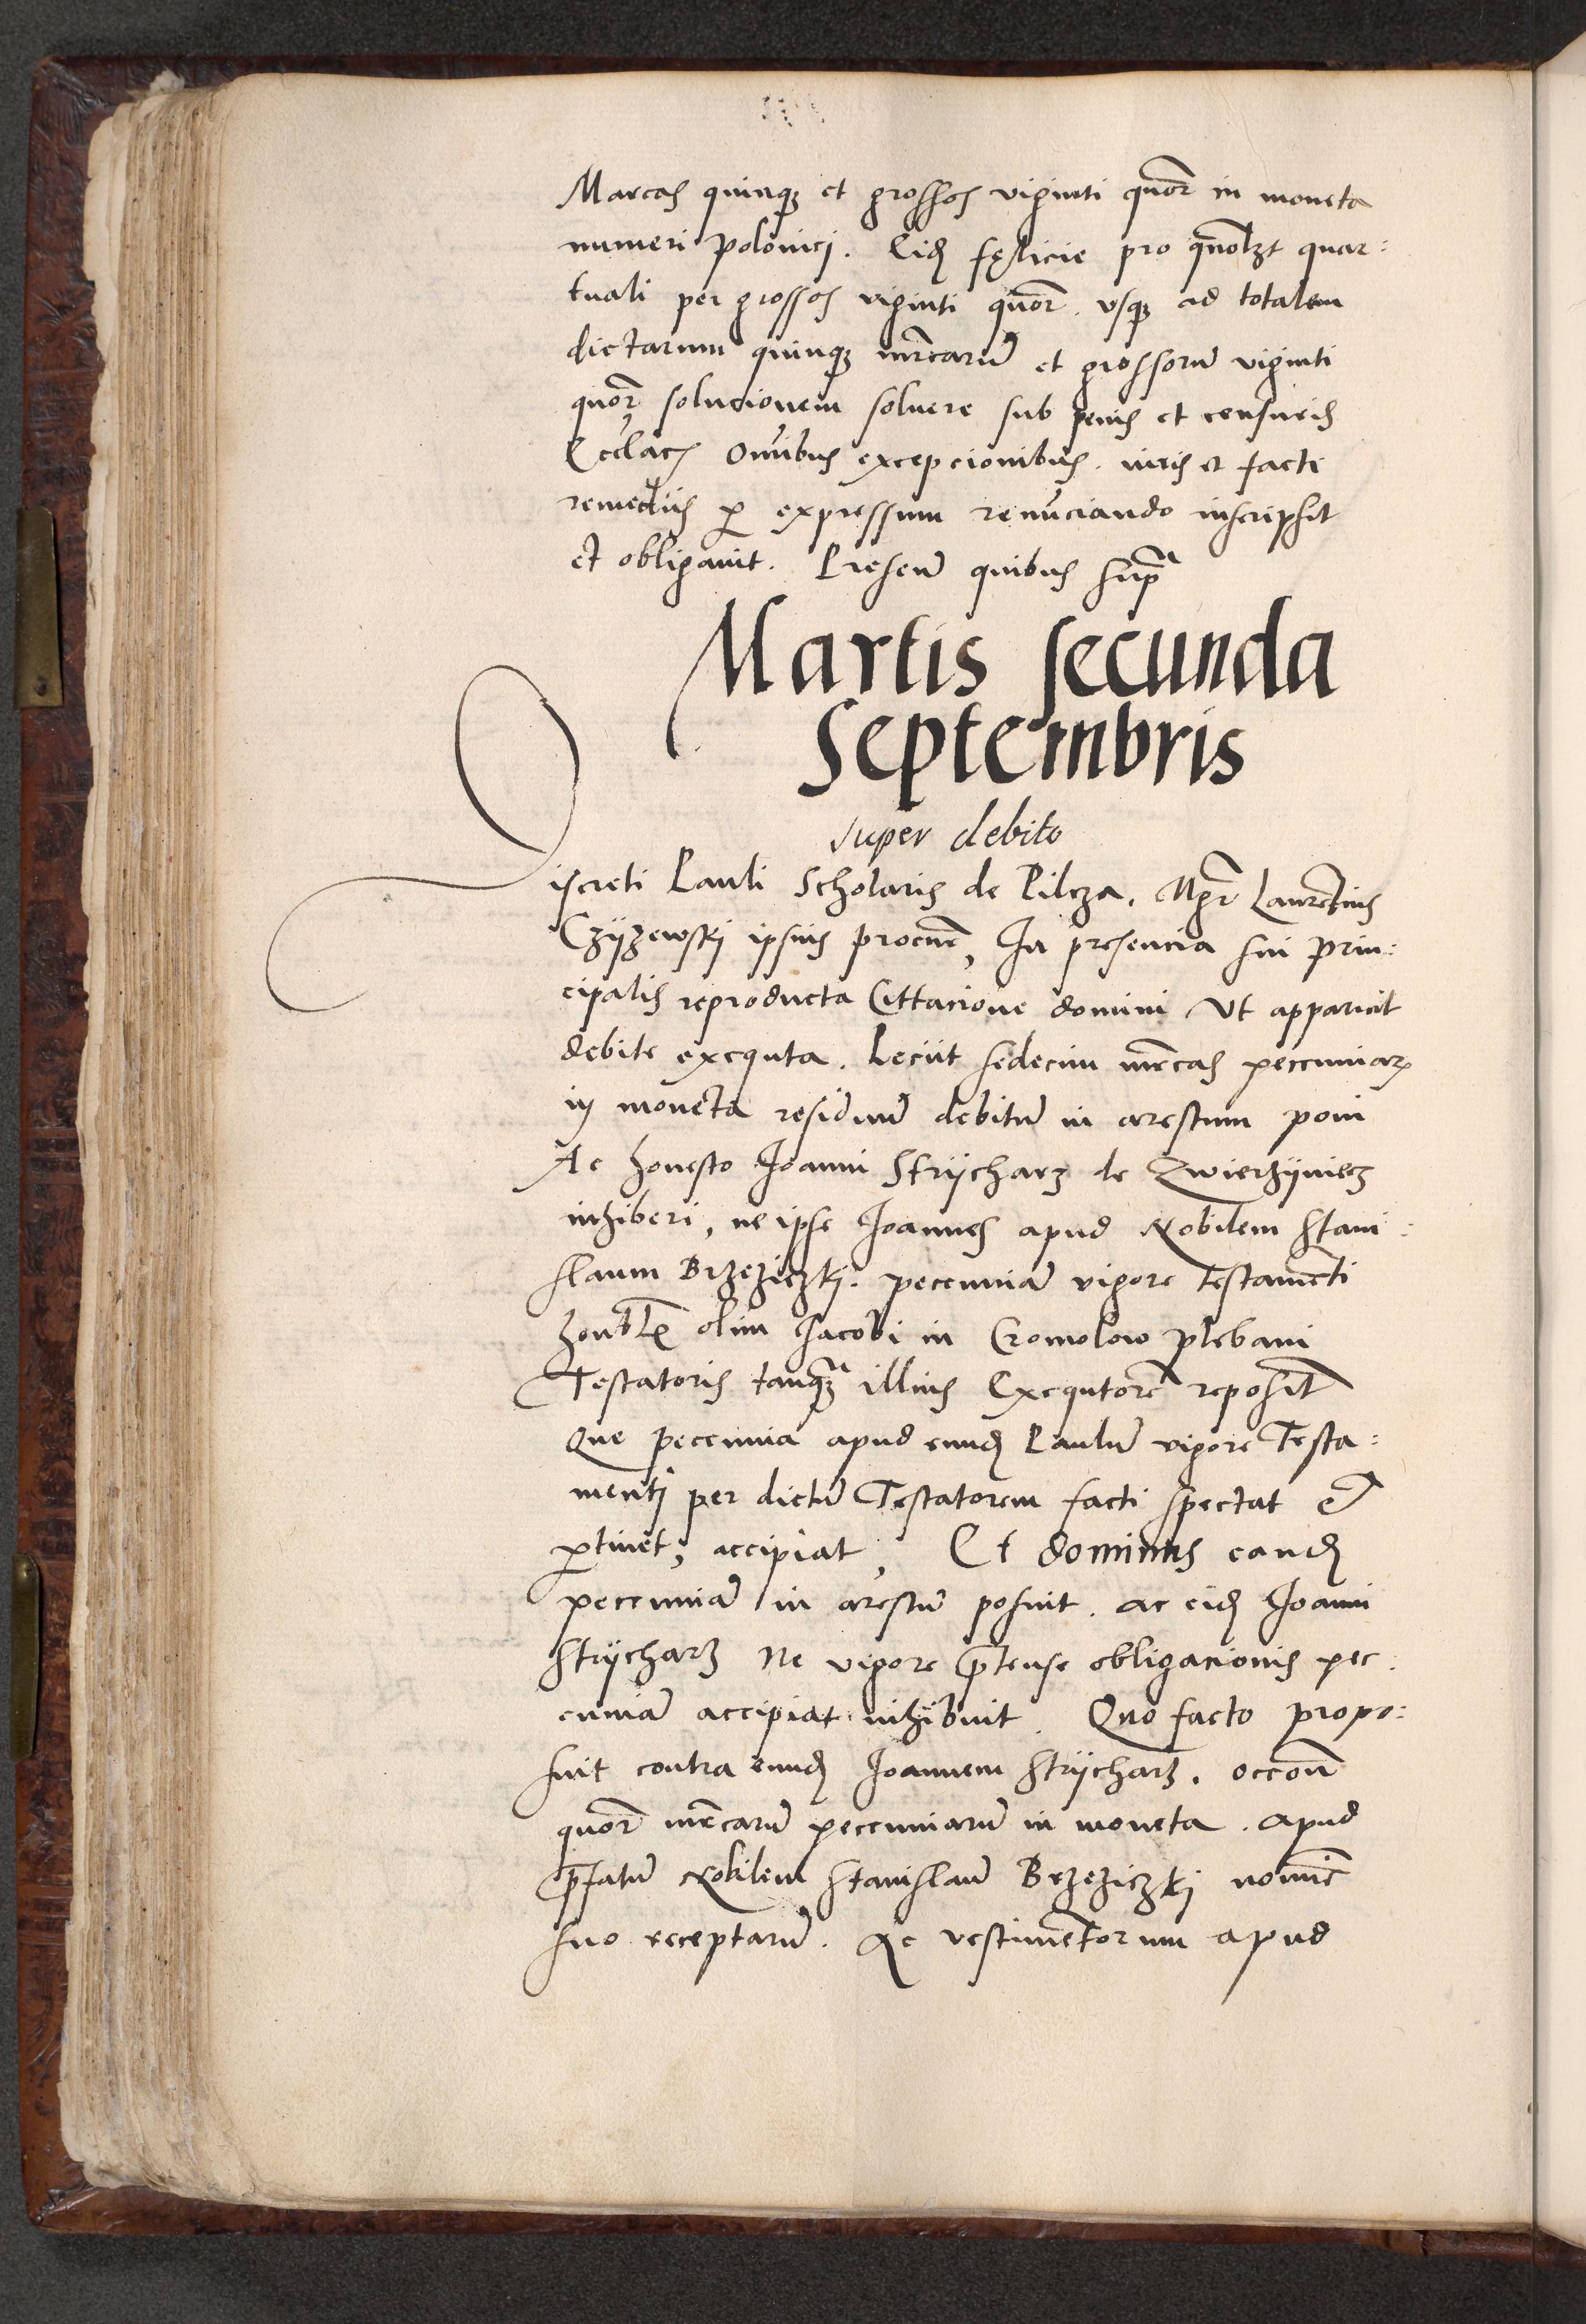 Marcas quinq₃ et grossos viginti quor̄ in moneta
numeri polonicj. Eid̄ fęlicie pro quol₃t quar:
tuali per grossos viginti quor̄. vsq₃ ad totalem
dictarum quinq₃ mr̄carū et grossorū viginti
quor̄ solucionem soluere sub penis et censuris
Eccl̄ac̄ Om̄ibus excepcionibus. iuris et facti
remediis ꝑ expressum renūciando inscripsit
et obligauit. Presen̄ quibus supᵃ
Martis secunda
Septembris
super debito
Discreti Pauli Scholaris de Pilcza. Mgr̄ Laurētius
Czÿzewskj ipsius procur̄, In presencia sui prin:
cipalis reproducta Cittacione domini Vt apparuit
debite exequta. Peciit sedecim mr̄cas peccuniarꝝ
in moneta residuū debitū in arestum poni
Ac honesto Joanni Strÿcharz de Zwierzÿniecz
inhiberi, ne ipse Joannes apud Nobilem Stani:
slaum Brzeziczkj. peccuniā vigore testamēti
honbl̄is olim Jacobi in Cromolow plebani
Testatoris tanq₃ᵃ illius Exequtorē reposit̄
Que peccunia apud eund̄ Paulū vigore Testa:
mentj per dictū Testatorem facti spectat et
ꝑtinet, accipiat, Et dominus eand̄
peccuniā in arestū posuit. ac eid̄ Joanni
Strÿcharz Ne vigore p̄tense obligacionis pec:
cuniā accipiat inhibuit. Quo facto propo:
suit contra eund̄ Joannem Strÿcharz. occōn̄
quor̄ mr̄carū peccuniarū in moneta. apud
p̄fatū Nobilem Stanislaū Brzeziczkj nomīe
suo receptarū. Ac vestimētorum apud